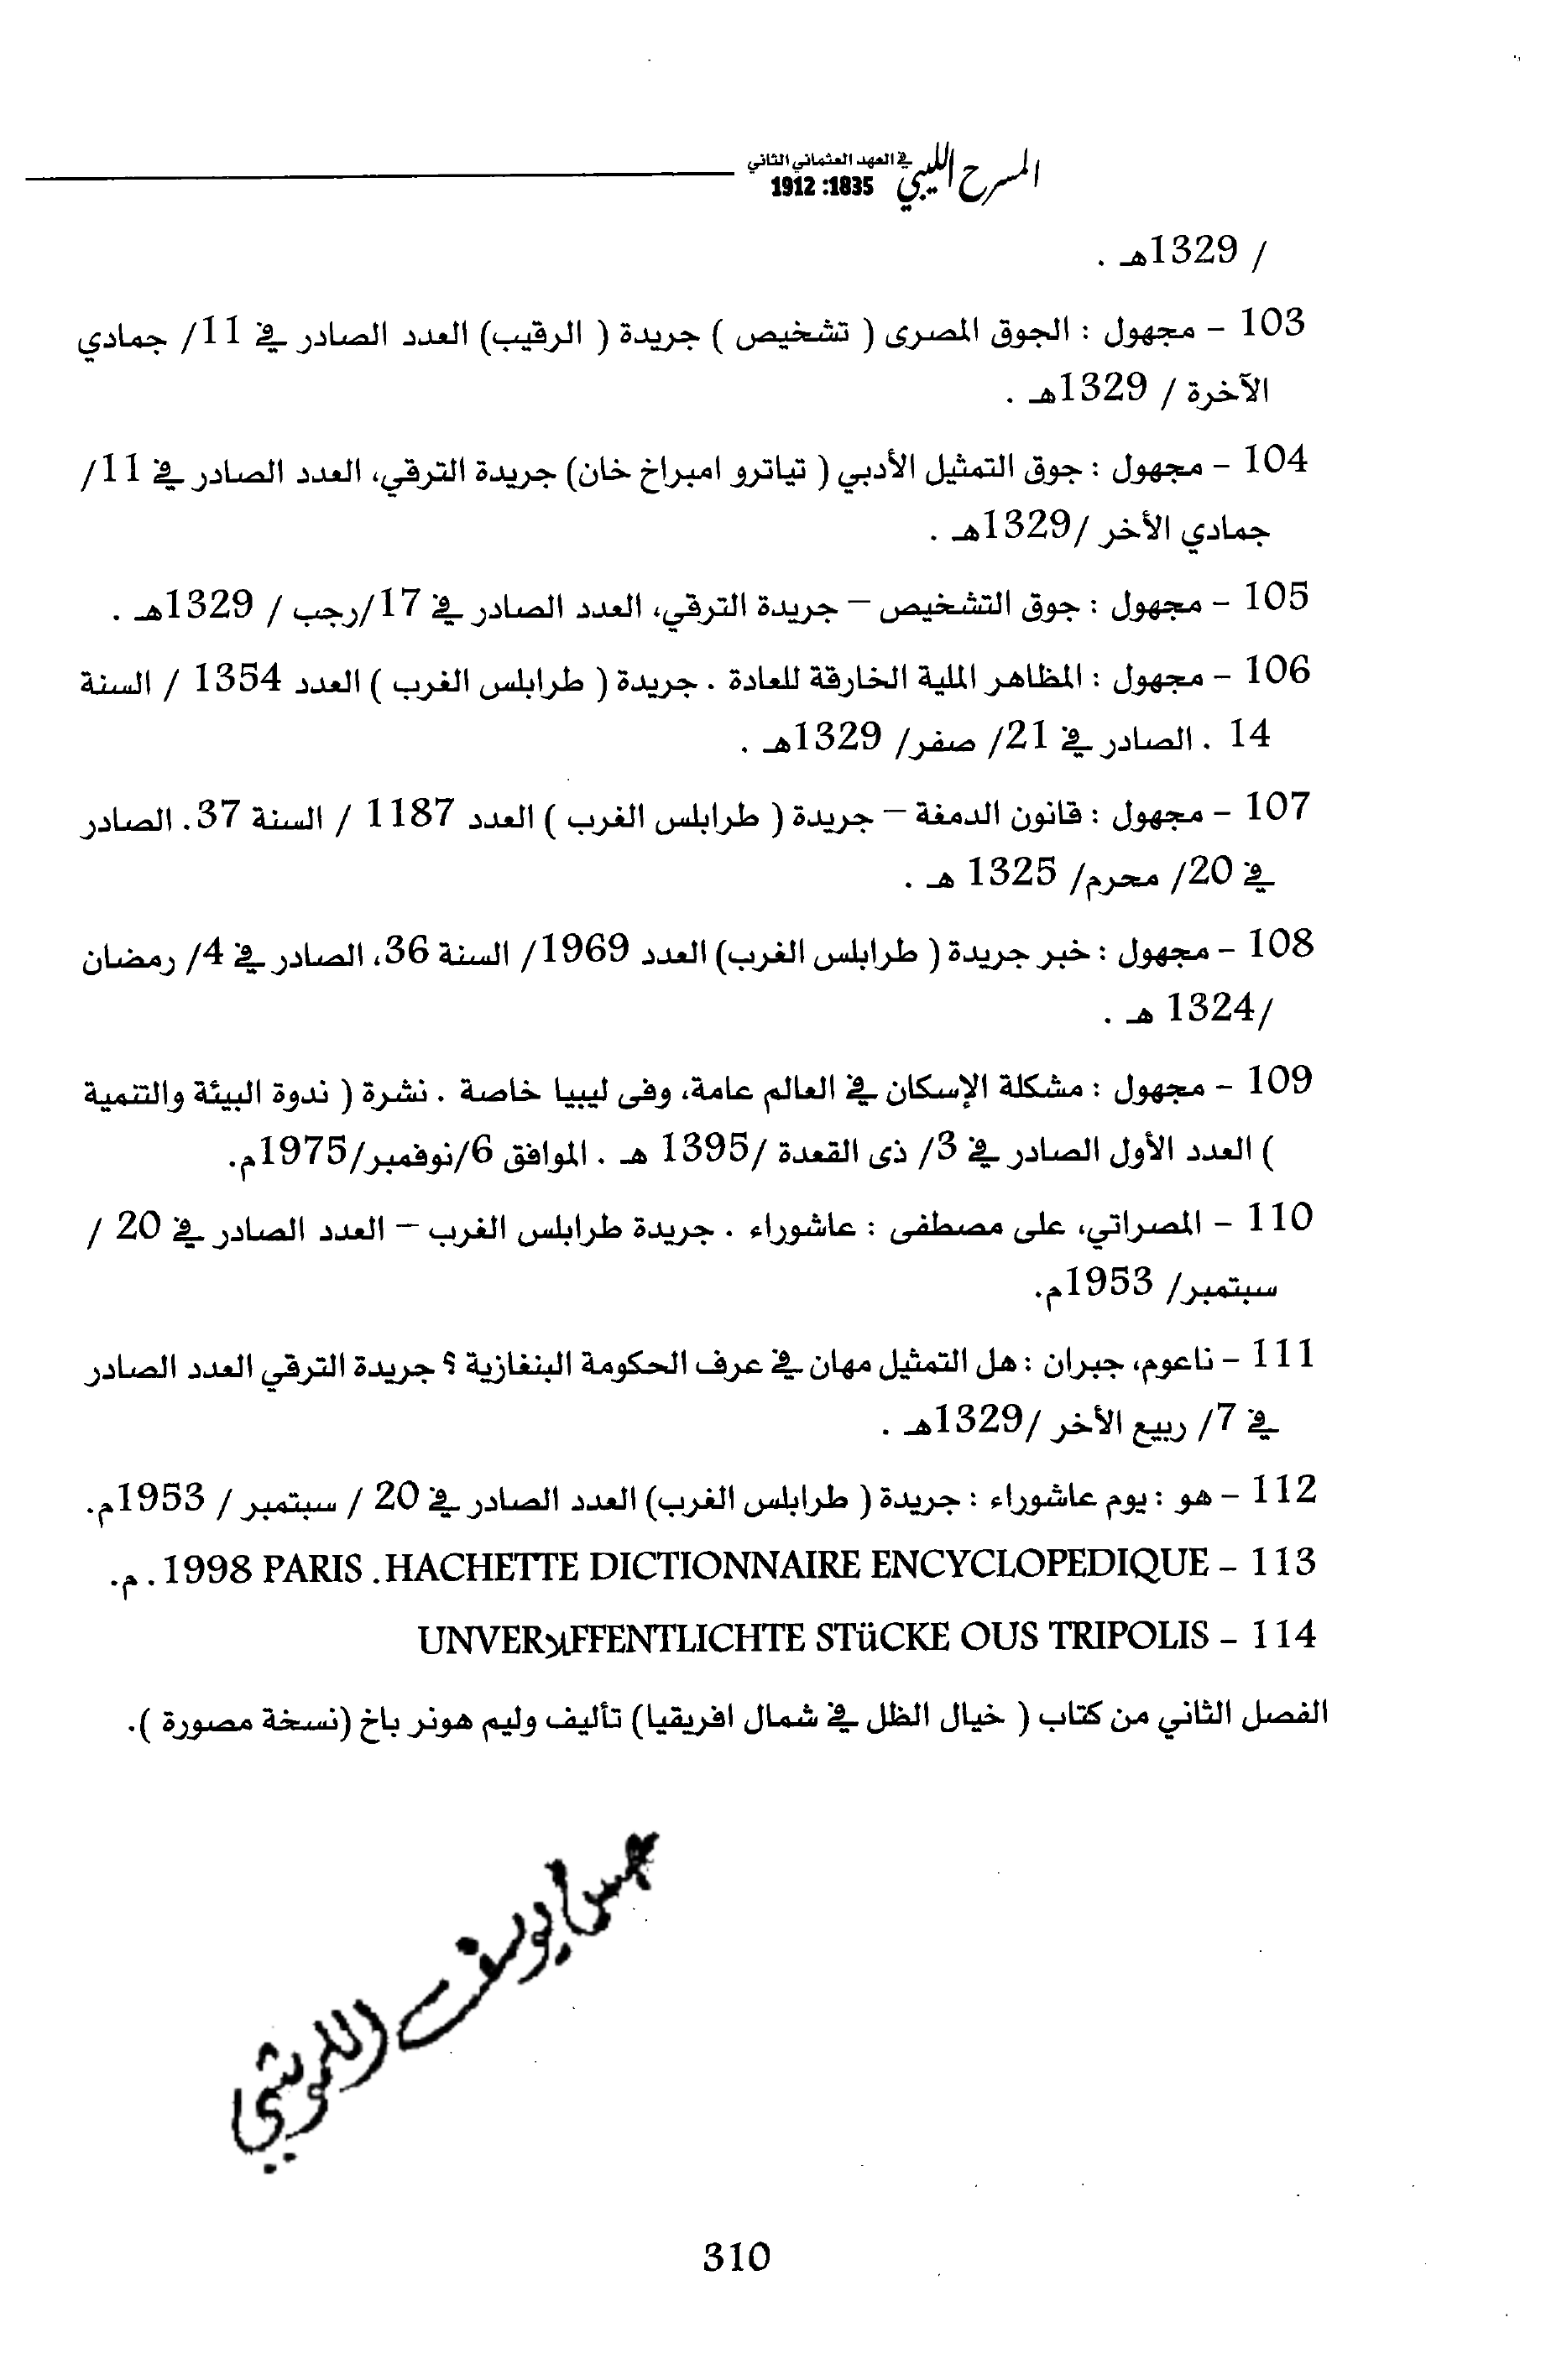 المسرح الليبي في العهد العثماني الثاني
1835: 1912
/ 1329هـ .
103 - مجهول : الجوق المصرى ( تشخيص ) جريدة ( الرقيب) العدد الصادر في 11/ جمادي
الآخرة / 1329هـ .
104 - مجهول : جوق التمثيل الأدبي ( تياترو امبراخ خان) جريدة الترقي، العدد الصادر في 11/
جمادي الأخر /1329هـ .
105 - مجهول : جوق التشخيص – جريدة الترقي، العدد الصادر في 17/رجب / 1329هـ .
106 - مجهول : المظاهر الملية الخارقة للعادة . جريدة ( طرابلس الغرب ) العدد 1354 / السنة
14 . الصادر في 21/ صفر/ 1329هـ .
107 - مجهول : قانون الدمغة – جريدة ( طرابلس الغرب ) العدد 1187 / السنة 37. الصادر
في 20/ محرم/ 1325 هـ .
108 - مجهول : خبر جريدة ( طرابلس الغرب) العدد 1969/ السنة 36، الصادر في 4/ رمضان
/1324 هـ .
109 - مجهول : مشكلة الإسكان في العالم عامة، وفى ليبيا خاصة . نشرة ( ندوة البيئة والتنمية
) العدد الأول الصادر في 3/ ذى القعدة /1395 هـ . الموافق 6/نوفمبر/1975م.
110 - المصراتي، على مصطفى : عاشوراء . جريدة طرابلس الغرب – العدد الصادر في 20 /
سبتمبر/ 1953م.
111 - ناعوم، جبران : هل التمثيل مهان في عرف الحكومة البنغازية ؟ جريدة الترقي العدد الصادر
في 7/ ربيع الأخر /1329هـ .
112 - هو : يوم عاشوراء : جريدة ( طرابلس الغرب) العدد الصادر في 20 / سبتمبر / 1953م.
113 - HACHETTE DICTIONNAIRE ENCYCLOPEDIQUE. PARIS 1998 . م.
114 - UNVERFFENTLICHTE STüCKE OUS TRIPOLIS
الفصل الثاني من كتاب ( خيال الظل في شمال افريقيا) تأليف وليم هونر باخ (نسخة مصورة ).
يوسف
310